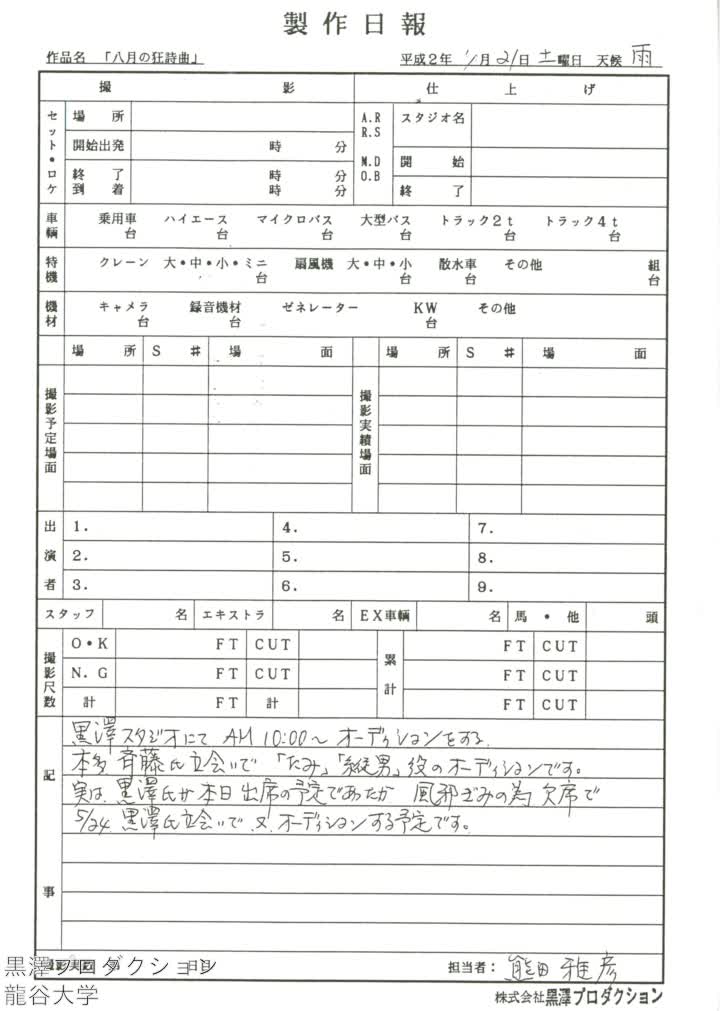 製作日報
作品名 「八月の狂詩曲」 平成2年 月21日 土曜日 天候 雨
撮影 仕上げ
セット・ロケ 場所 A.R R.S M.D O.B スタジオ名
開始出発 時 分 開始
終了 時 分 終了
到着 時 分
車輌 乗用車 台 ハイエース 台 マイクロバス 台 大型バス 台 トラック2t 台 トラック4t 台
特機 クレーン 大・中・小・ミニ 台 扇風機 大・中・小 台 散水車 台 その他 組 台
機材 キャメラ 台 録音機材 台 ゼネレーター KW 台 その他
場所 S # 場面 場所 S # 場面
撮影予定場面 撮影実績場面
出演者
1. 4. 7.
2. 5. 8.
3. 6. 9.
スタッフ 名 エキストラ 名 EX車輌 名 馬・他 頭
撮影尺数 O・K FT CUT 累計 FT CUT
N.G FT CUT FT CUT
計 FT 計 FT CUT
記事
黒澤スタジオにて AM 10:00〜 オーディションをする.
本多 斉藤氏立会いで 「たみ」「縦男」役のオーディションです。
実は、黒澤氏が本日出席の予定であったが 風邪ぎみの為 欠席で
5/24 黒澤氏立会いで 又、オーディションする予定です。
担当者: 熊田雅彦
株式会社黒澤プロダクション
黒澤プロダクション
龍谷大学